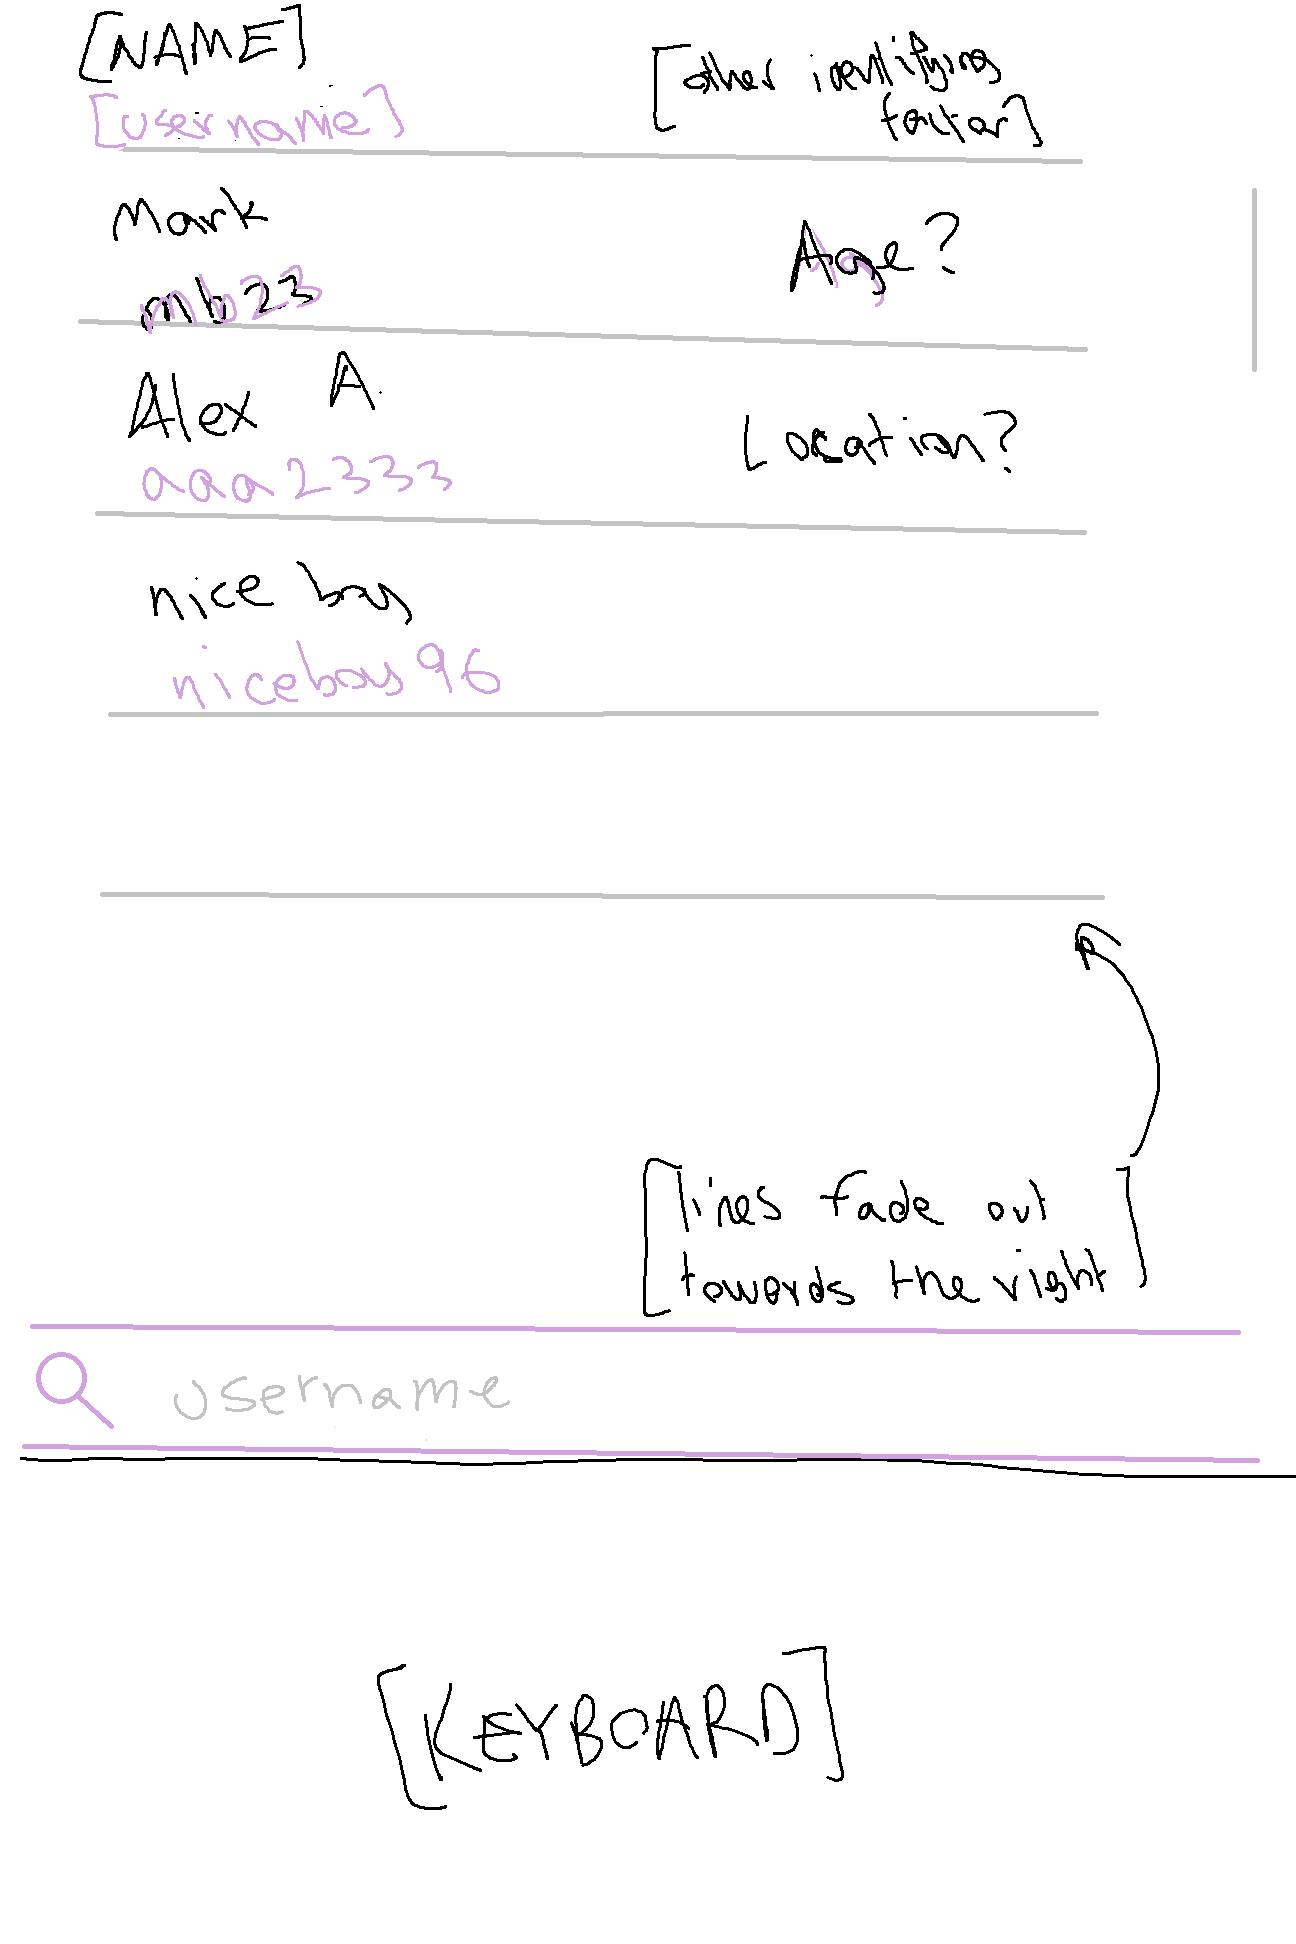 [NAME]
[username]
[other identifying
factor]
Mark
mb23
Age?
Alex A.
aaa2333
Location?
nice boy
niceboy96
[lines fade out
towards the right]
username
[KEYBOARD]